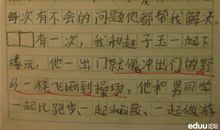 每次有不会的问题他都帮我解答。
有一次,我和赵子玉一起下
楼玩,他一出门就像冲出门的野
马一样飞到操场,他和男同学
一起比跑步、一起 一起做游
eduu论坛